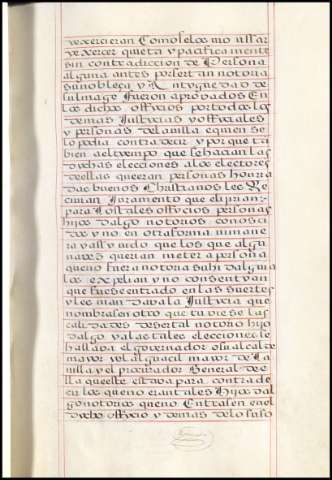 yexercieran Como se les mo
y exercer quieta y pacificamente
sin contradiccion de Persona
alguna antes por ser tan notoria
su nobleça y Antyguedad de
su linage fueron aprovados En
los dichos officios por todos los
demas Justicias y officiales
y personas de la villa e quien se
lo podia contradecir y por que tan
bien al tiempo que se hacian las
dichas elecciones a los electores
dellas que eran personas honrra
das buenos Christianos les Re
civian Juramento que eligirian
para Los tales officios personas
hijos dalgo notorios conosci
dos y no en otra forma ni mane
ra y assy visto que los que algu
na ves querian meter a persona
que no fuera notorio su hidalguia
los expelian y no consentyan
que fuese entrado en las suertes
y les mandava la Justicia que
nombrasen otro que tuviese las
calidades de ser tal notorio hijo
dalgo y a las tales elecciones se
hallava el governador o su alcalde
mayor y el alguacil mayor de La
villa y el procurador General de e
lla que este estava para contrade
cir los que no eran tales Hijos dal
go notorios que no Entrasen en el
dicho officio y demas de lo suso